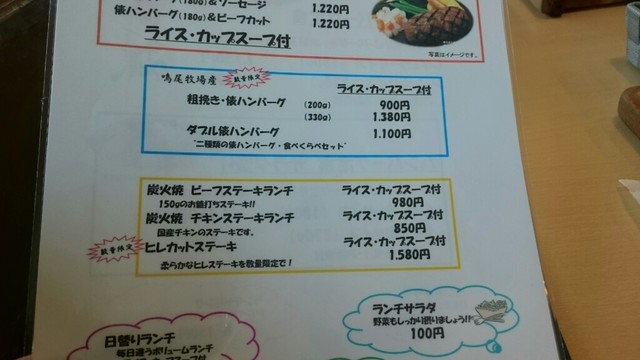 (180g)&ソーセージ 1.220円
俵ハンバーグ(180g)&ビーフカット 1.220円
ライス・カップスープ付
写真はイメージです。
鳴尾牧場産 数量限定 ライス・カップスープ付
粗挽き・俵ハンバーグ (200g) 900円
(330g) 1.380円
ダブル俵ハンバーグ 1.100円
"二種類の俵ハンバーグ・食べくらべセット"
炭火焼 ビーフステーキランチ ライス・カップスープ付
150gのお値打ちステーキ!! 980円
炭火焼 チキンステーキランチ ライス・カップスープ付
国産チキンのステーキです。 850円
数量限定 ヒレカットステーキ ライス・カップスープ付
柔らかなヒレステーキを数量限定で! 1.580円
ランチサラダ
野菜もしっかり摂りましょう!!
100円
日替りランチ
毎日違うボリュームランチ